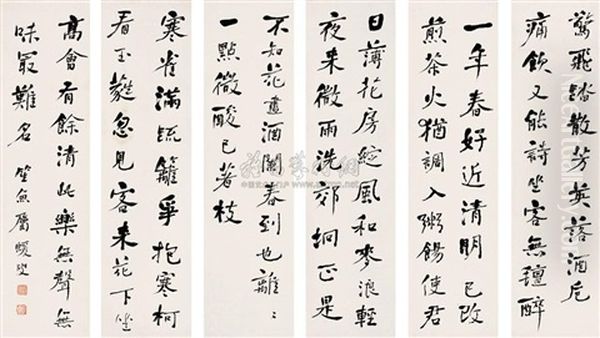 驚飛踏散芳英落酒卮
痛飲又能詩坐客無氊醉
一年春好近清明已改
煎茶火猶調入粥餳使君
日薄花房綻風和麥浪輕
夜來微雨洗郊坰正是
不知花盡酒闌春到也離〻
一點微酸已著枝
寒雀滿疏籬爭抱寒柯
看玉蕤忽見客來花下坐
高會有餘清此樂無聲無
味最難名